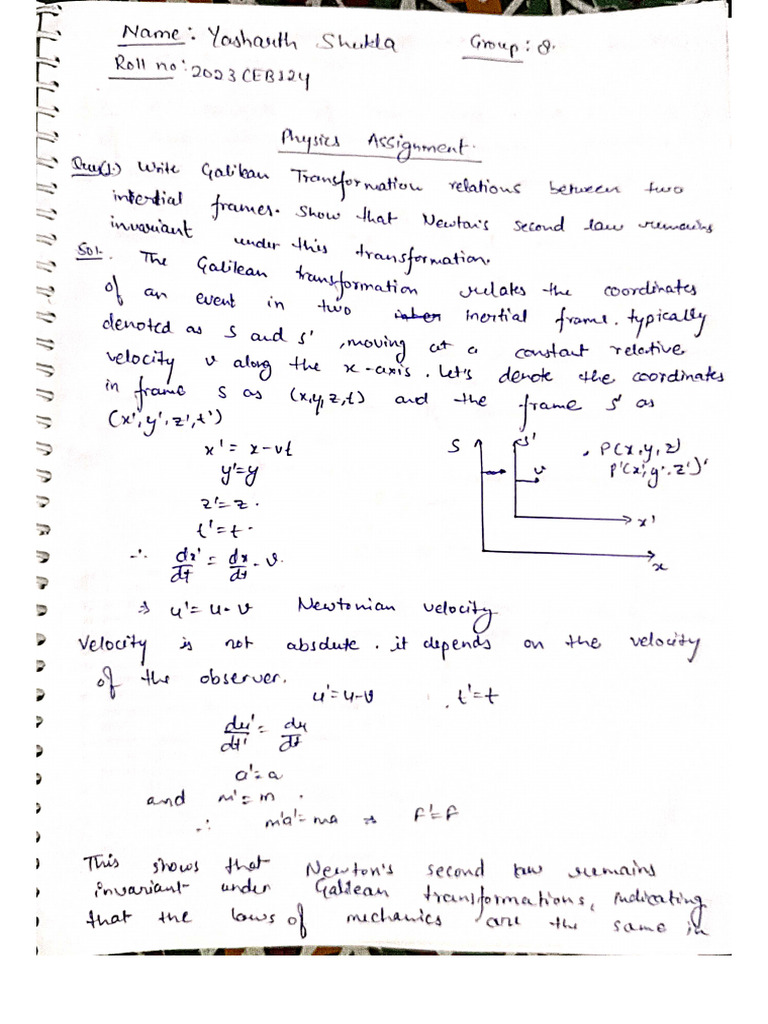 Name: Yasharth Shukla Group: 8.
Roll no: 2023CEB324
Physics Assignment.
Que(1.) Write Galilean Transformation relations between two
intertial frames. Show that Newton's second law remains
invariant under this transformation.
Sol. The Galilean transformation relates the coordinates
of an event in two inertial frame. typically
denoted as S and S', moving at a constant relative
velocity v along the x-axis. Let's denote the coordinates
in frame S as (x,y,z,t) and the frame S' as
(x',y',z',t')
x' = x-vt
y'=y
z'=z.
t'=t.
∴ dx'/dt = dx/dt - v.
S S' v x' x
. P(x,y,z)
P'(x',y',z')'
⇒ u'=u-v Newtonian velocity
Velocity is not absolute. it depends on the velocity
of the observer.
u'=u-v , t'=t
du'/dt' = du/dt
a'=a
and m'=m.
∴ m'a'=ma ⇒ F'=F
This shows that Newton's second law remains
invariant under Galilean transformations, indicating
that the laws of mechanics are the same in